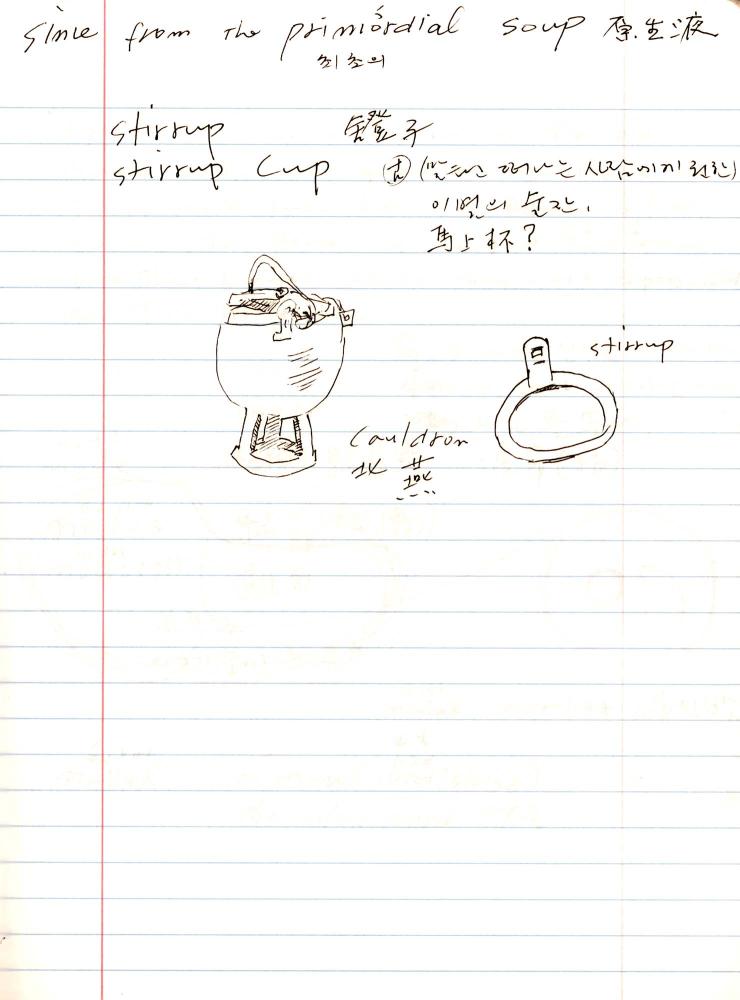 since from the primórdial soup 原生液
최초의
stirrup 鐙子
stirrup Cup (말타고 떠나는 사람에게 권한)
이별의 술잔,
馬上杯?
stirrup
Cauldron
北燕